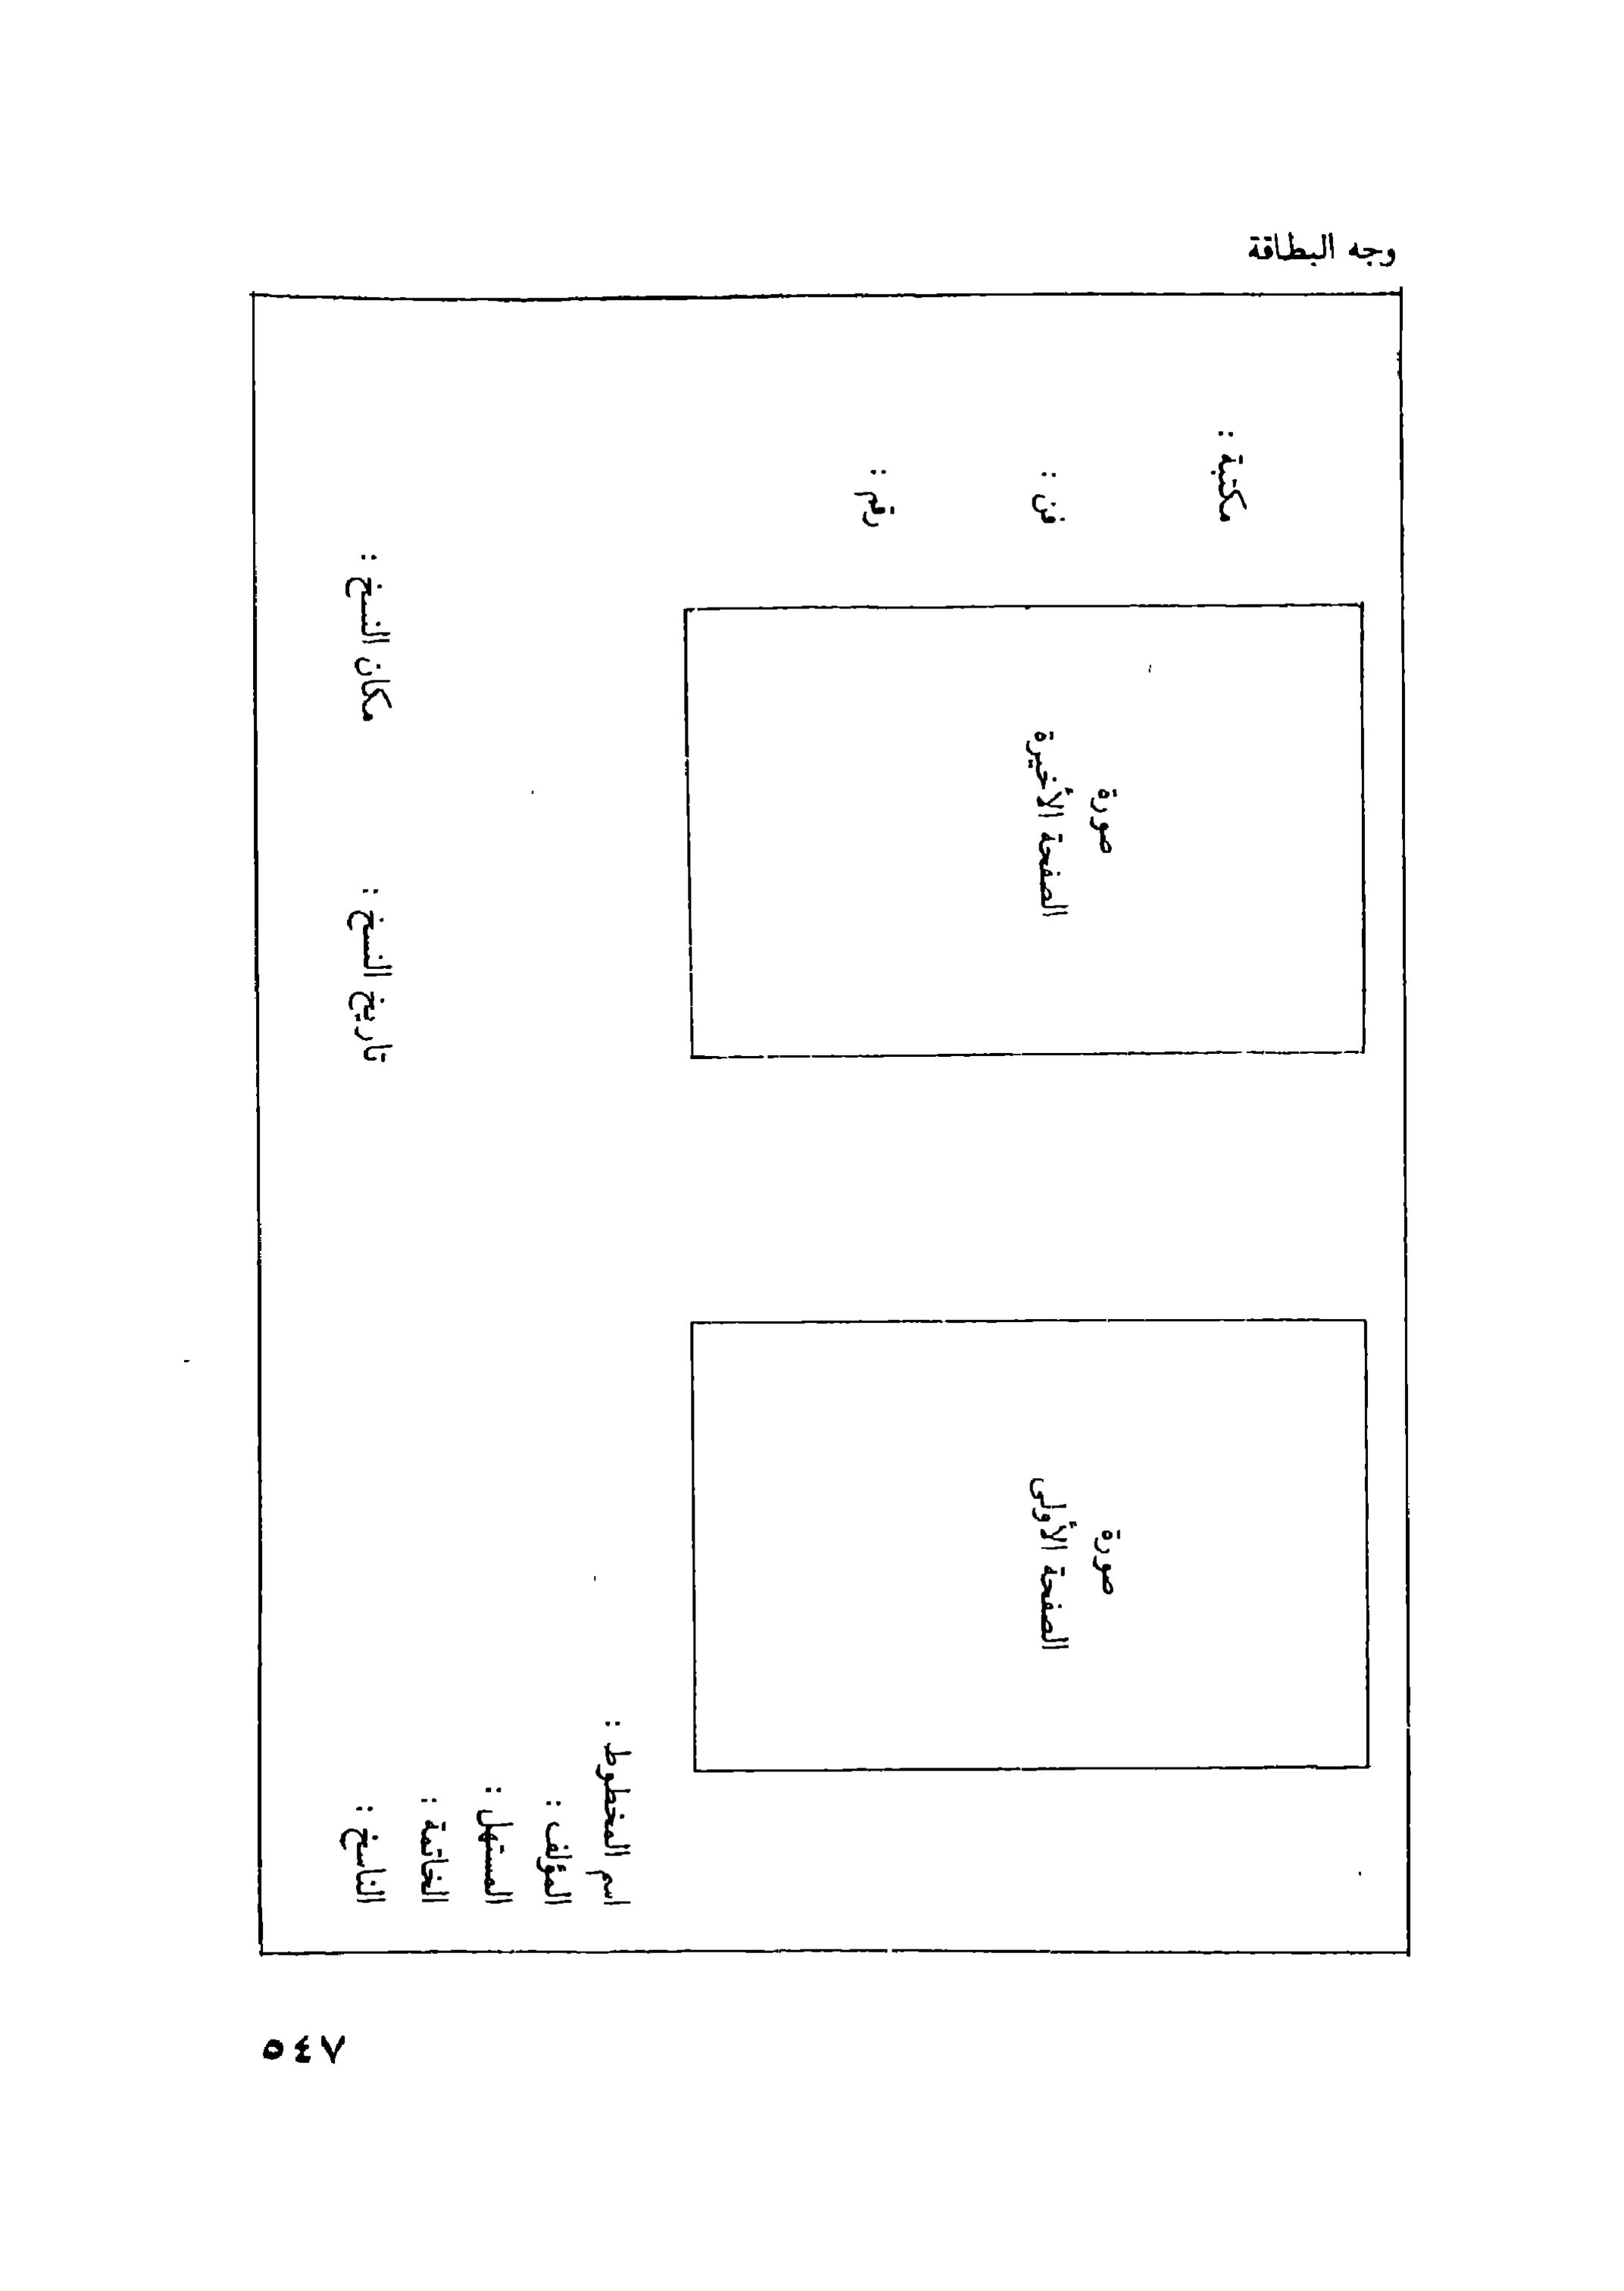 وجه البطاقة
صورة
الصفحة الأولى
صورة
الصفحة الأخيرة
مكتبة :
فن :
رقم :
اسم المخطوط :
المؤلف :
المستهل :
الخاتمة :
الناسخ : تاريخ النسخ : مكان النسخ :
٥٤٧